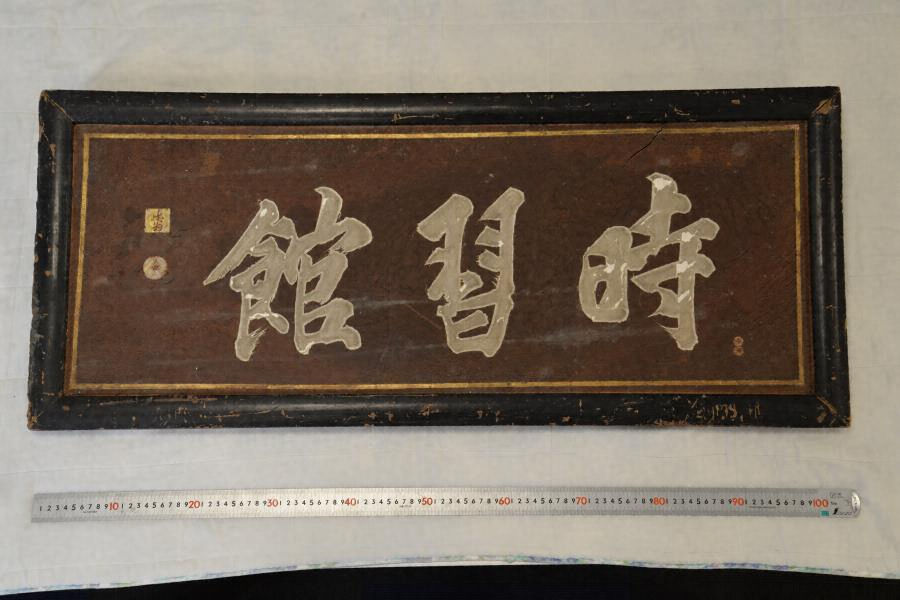 時習館
1 2 3 4 5 6 7 8 9 10 1 2 3 4 5 6 7 8 9 20 1 2 3 4 5 6 7 8 9 30 1 2 3 4 5 6 7 8 9 40 1 2 3 4 5 6 7 8 9 50 1 2 3 4 5 6 7 8 9 60 1 2 3 4 5 6 7 8 9 70 1 2 3 4 5 6 7 8 9 80 1 2 3 4 5 6 7 8 9 90 1 2 3 4 5 6 7 8 9 100